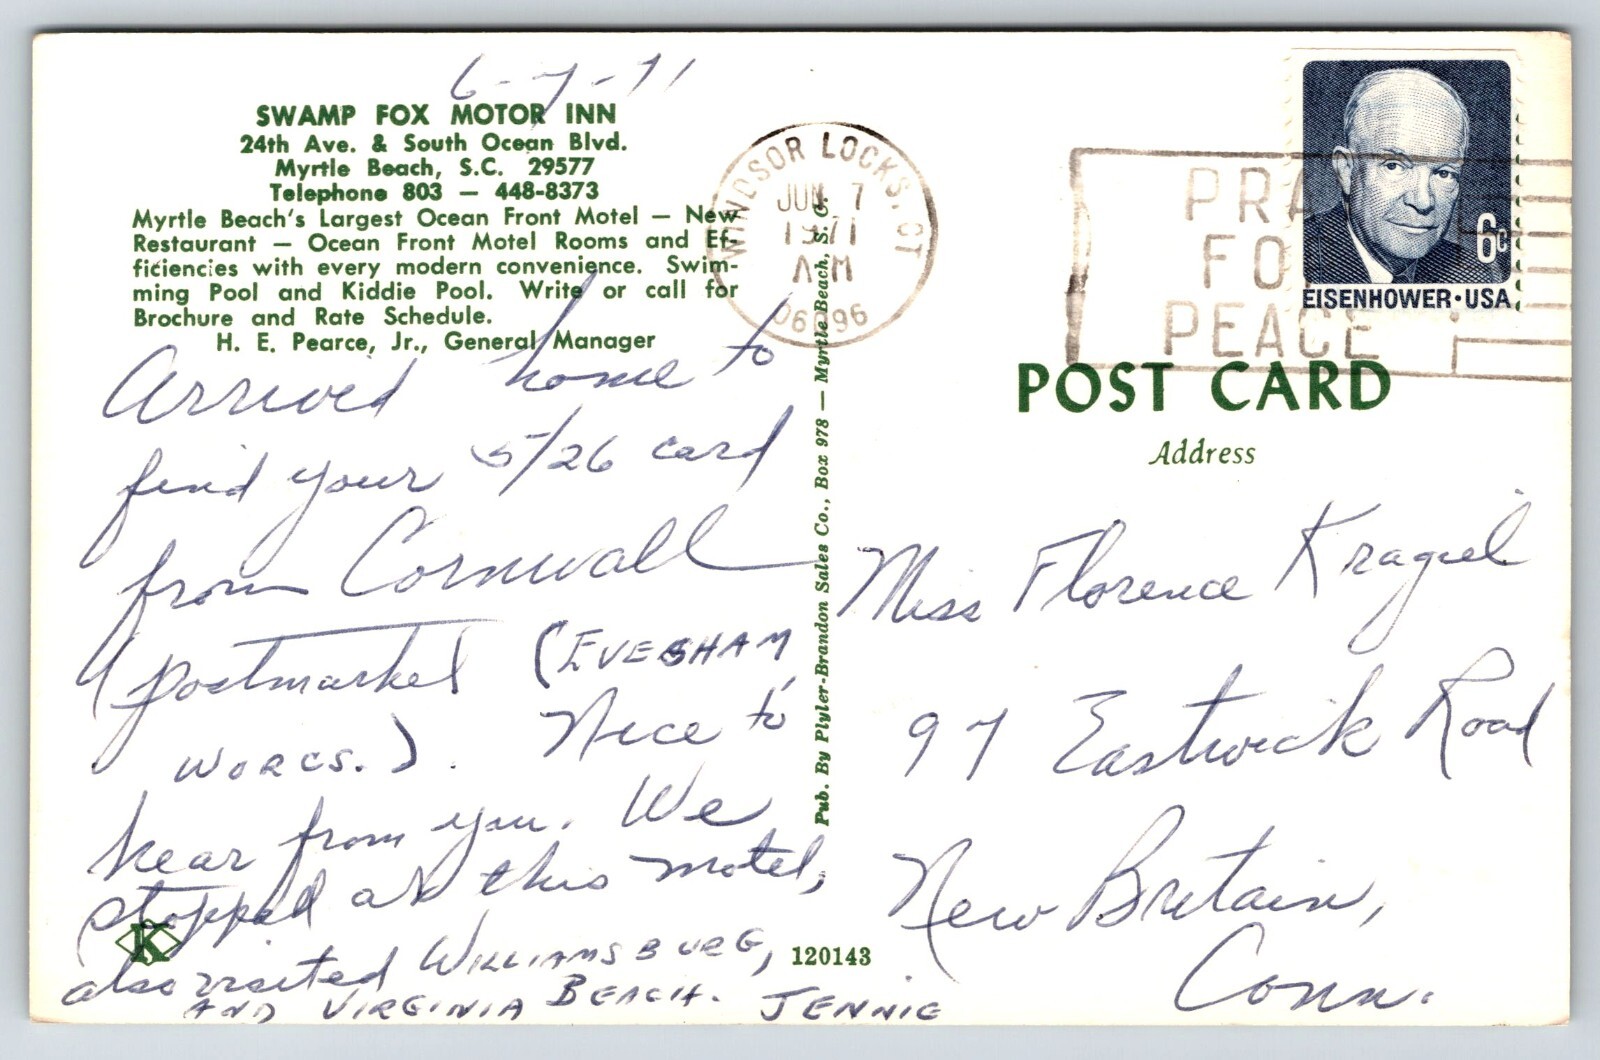 6-7-71
SWAMP FOX MOTOR INN
24th Ave. & South Ocean Blvd.
Myrtle Beach, S.C. 29577
Telephone 803 — 448-8373
Myrtle Beach's Largest Ocean Front Motel — New
Restaurant — Ocean Front Motel Rooms and Ef-
ficiencies with every modern convenience. Swim-
ming Pool and Kiddie Pool. Write or call for
Brochure and Rate Schedule.
H. E. Pearce, Jr., General Manager
Arrived home to
find your 5/26 card
from Cornwall
(postmarked (EVESHAM,
WORCS.). Nice to
hear from you. We
stopped at this motel,
also visited WILLIAMSBURG,
AND VIRGINIA BEACH. JENNIE
K
120143
Pub. By Plyler-Brandon Sales Co., Box 978 — Myrtle Beach, S. C.
WINDSOR LOCKS, CT
JUN 7
1971
AM
06096
PRAY
FOR
PEACE
6c
EISENHOWER·USA
POST CARD
Address
Miss Florence Kragiel
97 Eastwick Road
New Britain,
Conn.